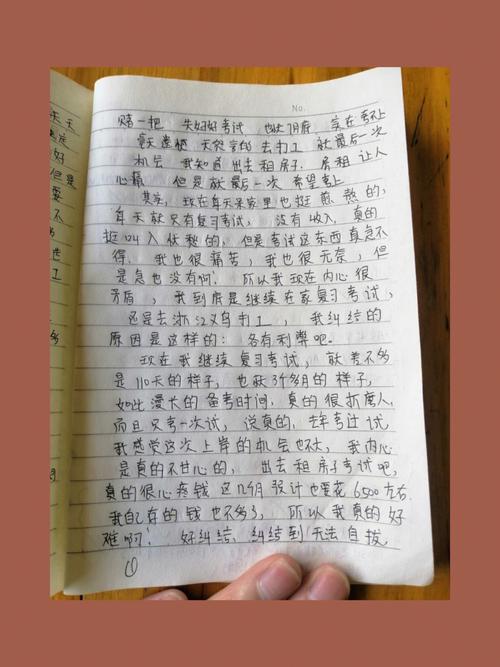 No.
赌一把 失好好考试 也就7月底,实在考不上
毫无遗憾 天 去打工 就最后一次
机会 我知道 出去租房子,房租 让人
心痛, 但是就最后一次 希望考上
其实,现在每天呆家里也挺煎熬的,
每天就只有复习考试, 没有收入, 真的
挺叫人忧愁的,但是考试这东西真急不
得,我也很痛苦,我也很无奈,但
是急也没有啊! 所以我现在内心很
矛盾,我到底是继续在家复习考试,
还是去浙江义乌打工,我纠结的
原因是这样的:各有利弊吧。
现在我继续复习考试,就差不多
是110天的样子,也就3个多月的样子,
如此漫长的备考时间,真的很折磨人,
而且只考一次试,说真的,去年考过试
我感觉这次上岸的机会也不大,我内心
是真的不甘心的, 出去租房子考试吧,
真的很心疼钱 这几个月预计也要花6500左右
我自己存的钱也不多了,所以我真的好
难啊! 好纠结,纠结到无法自拔,
天天
好
但是
要
不
世
工
多